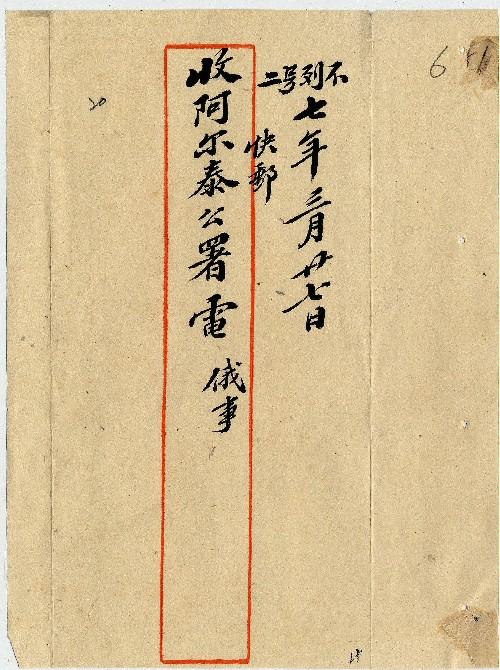 不列号二
七年三月廿七日
快郵
收阿尔泰公署電 俄事
6